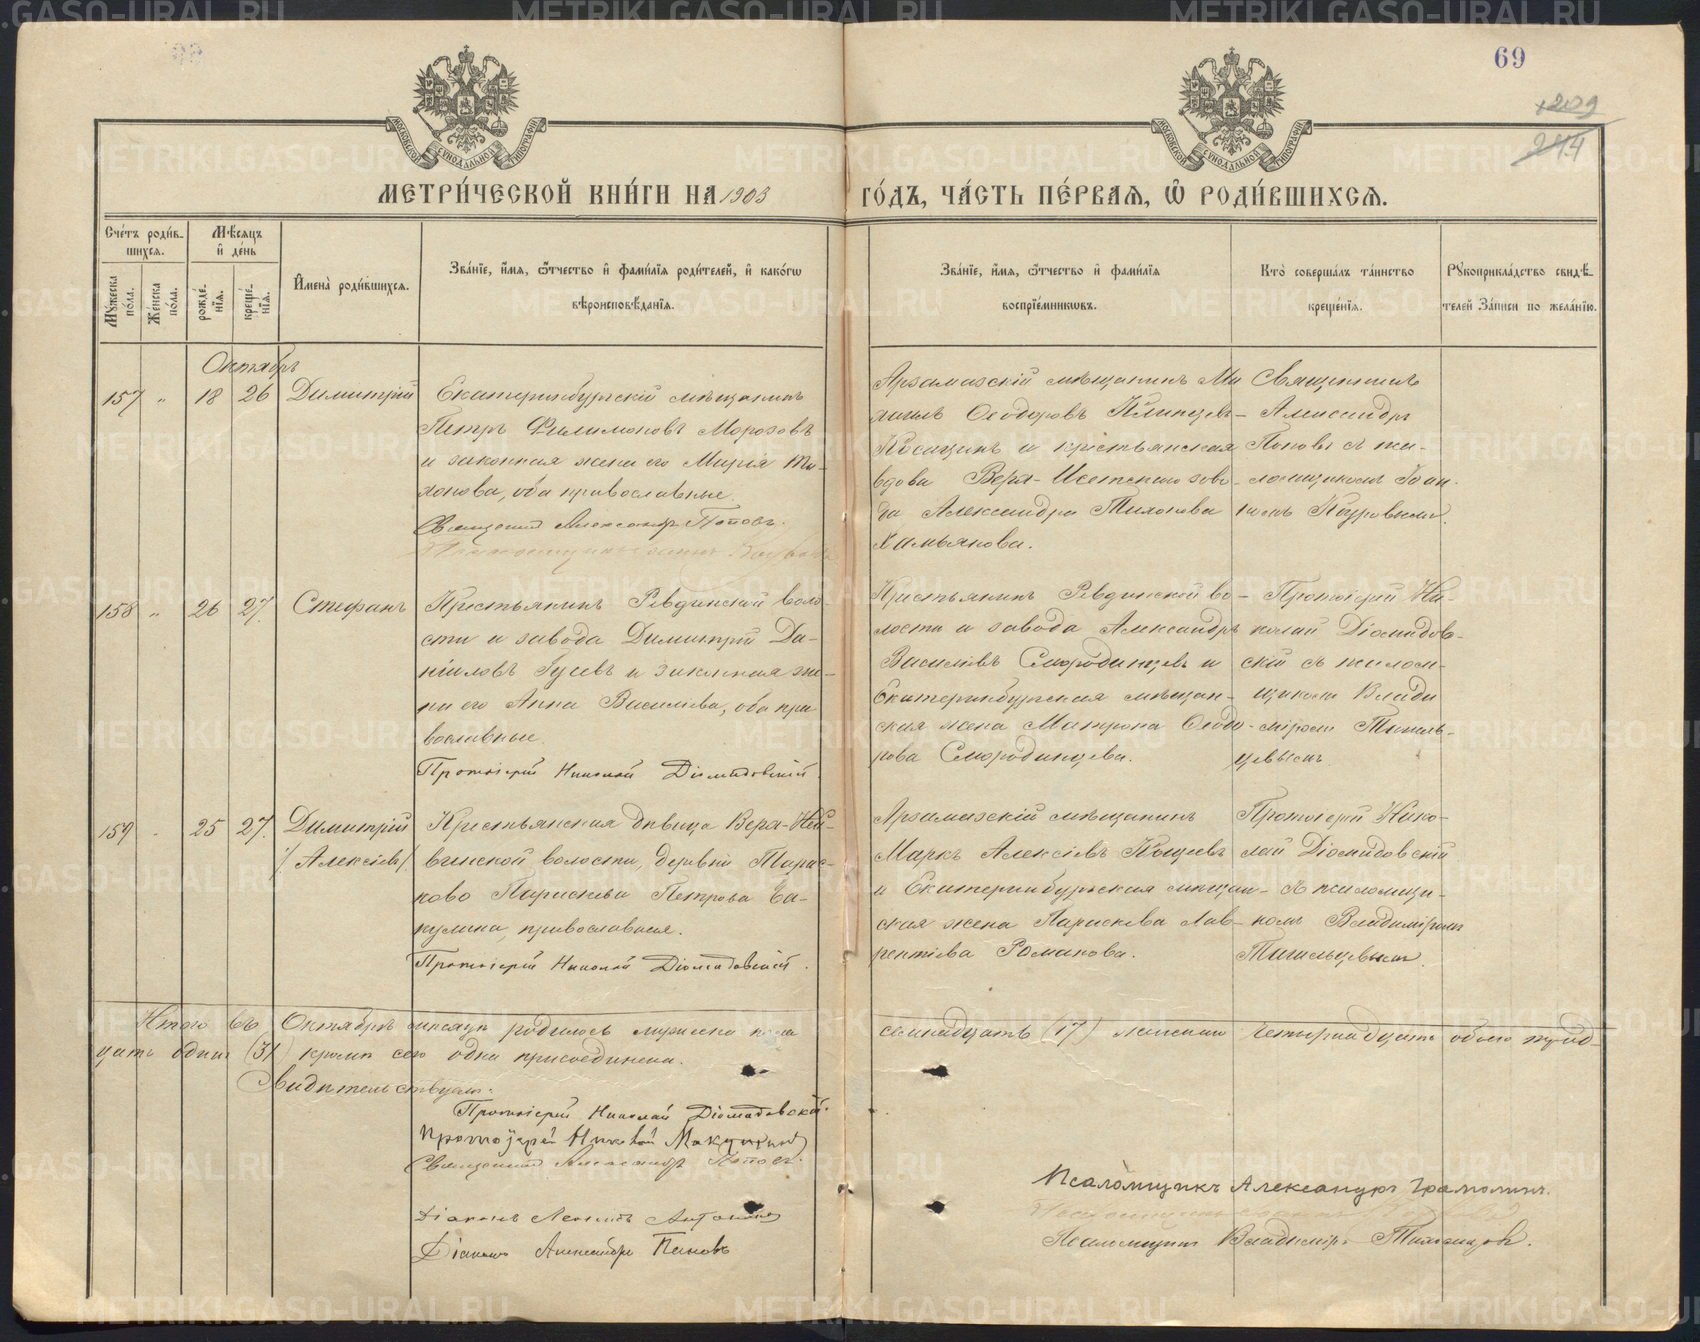 69
209
244
МОСКОВСКОЙ СѴНОДАЛЬНОЙ ТИПОГРАФІИ
МОСКОВСКОЙ СѴНОДАЛЬНОЙ ТИПОГРАФІИ
МЕТРИ́ЧЕСКОЙ КНИ́ГИ НА 1903 ГО́ДЪ, ЧА́СТЬ ПЕ́РВАѦ, Ѡ҆ РОДИ́ВШИХСѦ.
Сче́тъ роди́в-
шихсѧ.
Мѣ́сяцъ
и҆ де́нь
Мꙋ́жеска
по́ла.
Же́нска
по́ла.
рожде́-
нїѧ.
креще́-
нїѧ.
И҆мена̀ роди́вшихсѧ.
Зва́нїе, и҆́мѧ, ѻ҆́тчество и҆ фами́лїѧ роди́телей, и҆ како́гѡ
вѣроисповѣ́данїѧ.
Зва́нїе, и҆́мѧ, ѻ҆́тчество и҆ фами́лїѧ
воспрїе́мникѡвъ.
Кто̀ соверша́лъ та́инство
креще́нїѧ.
Рꙋкоприкла́дство свидѣ́-
телей за́писи по жела́нїю.
Октябрь
157 " 18 26 Димитрій
Екатеринбургскій мѣщанинъ
Петръ Филимоновъ Морозовъ
и законная жена его Марія Ти-
хонова, оба православные.
Священникъ Александръ Поповъ.
Арзамазскій мѣщанинъ Ми
хаилъ Ѳеодоровъ
и крестьянская
вдова Верх-Исетскаго заво-
да Александра Тихонова
Священникъ
Александръ
Поповъ съ пса-
ломщикомъ Іоан-
номъ
158 " 26 27. Стефанъ
Крестьянинъ Ревдинской воло-
сти и завода Димитрій Да-
ніиловъ Гусевъ и законная же-
на его Анна Василіева, оба пра
вославные.
Протоіерей Николай Діомидовскій.
Крестьянинъ Ревдинской во-
лости и завода Александръ
Василіевъ Смородинцевъ и
Екатеринбургская мѣщан-
ская жена Матрона Ѳеодо-
рова Смородинцева.
Протоіерей Ни-
колай Діомидов-
скій съ псалом-
щикомъ Влади
міромъ Тихель-
цевымъ
159 " 25 27. Димитрій
/Алексіевъ/
Крестьянская дѣвица Верх-Ней-
винской волости, деревни Тарас-
ково Параскева Петрова Ба-
кулина, православная.
Протоіерей Николай Діомидовскій.
Арзамазскій мѣщанинъ
Маркъ Алексіевъ
и Екатеринбургская мѣщан-
ская жена Параскева Лав-
рентіева Романова.
Протоіерей Нико-
лай Діомидовскій
съ псаломщи-
комъ Владиміромъ
Итого въ Октябрѣ мѣсяцѣ родилось мужеска пола семнадцать (17) женска четырнадцать обоего трид-
цать одинъ (31) кромѣ сего одна присоединена.
Свидѣтельствуютъ:
Протоіерей Николай Діомидовскій.
Протоіерей Николай
Священникъ Александръ Поповъ.
Діаконъ Леонидъ
Діаконъ Александръ Пановъ
Псаломщикъ Александръ
Псаломщикъ Владиміръ